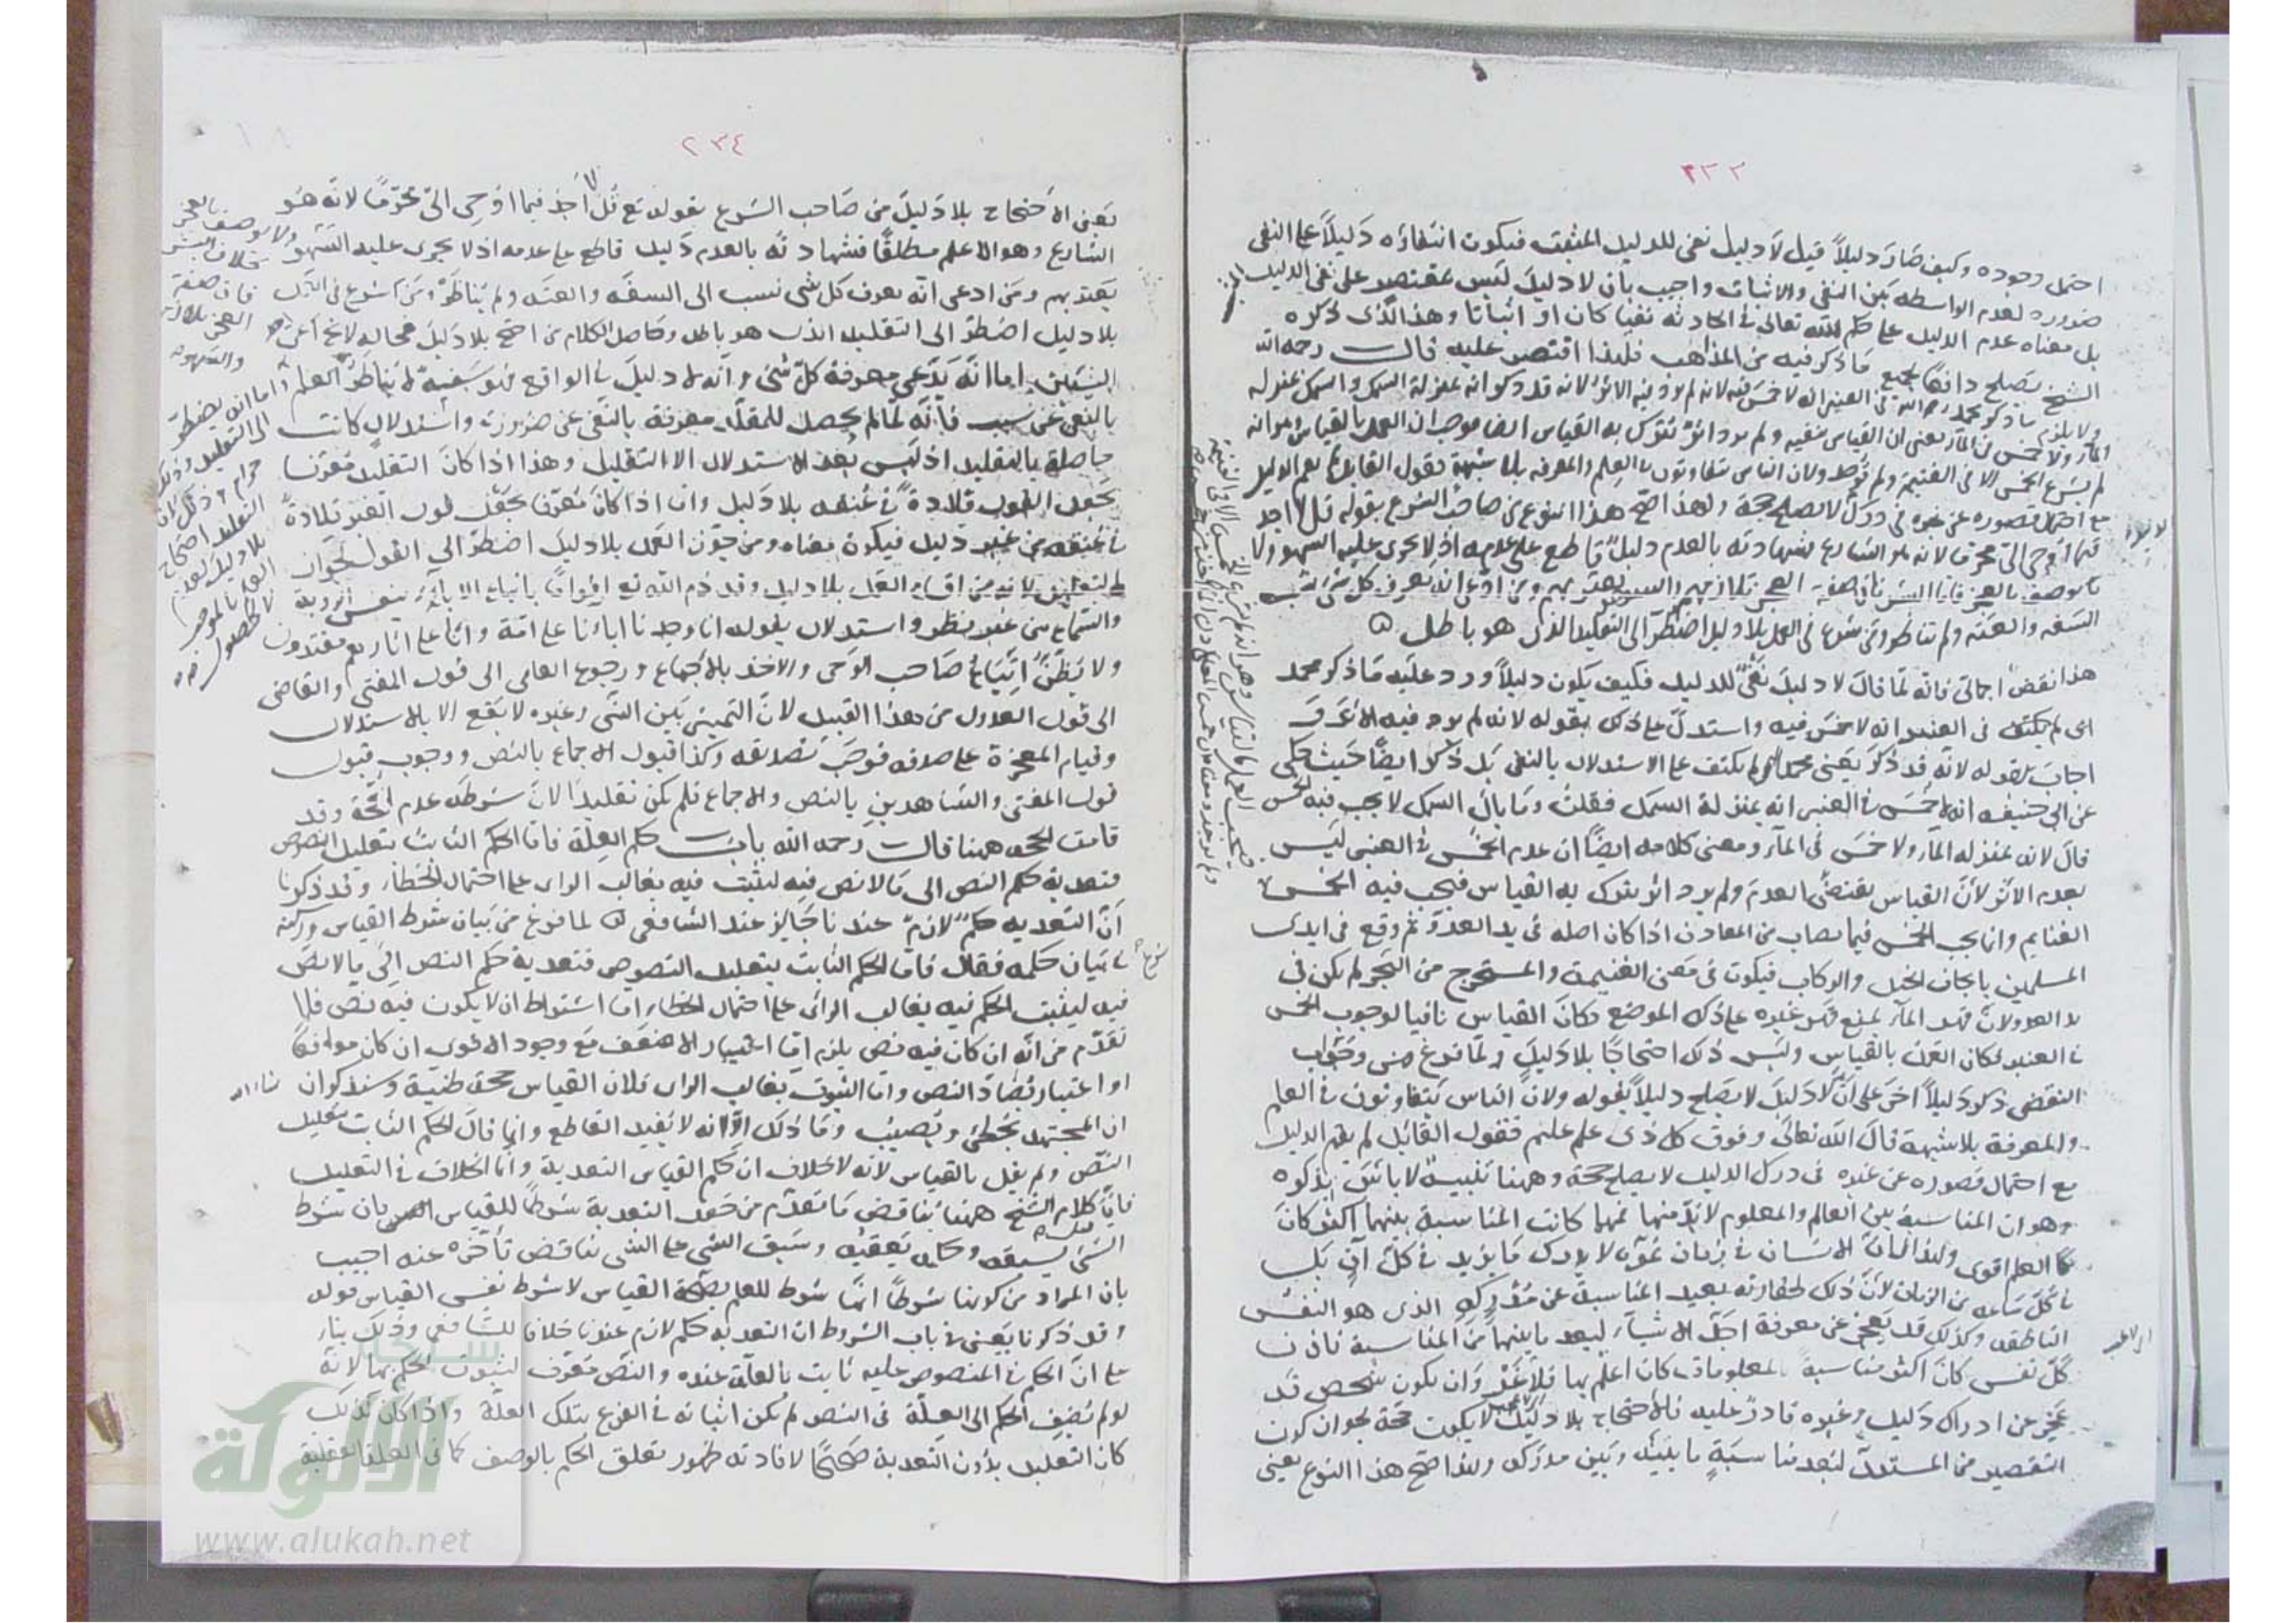 ٢٣٣
احتمل وجوده وكيف صار دليلاً قيل لا دليل نفى للدليل المثبت فيكون انتفاؤه دليلاً على النفى
ضروره لعدم الواسطه بين النفى والاثبات واجيب بان لا دليل ليس بمقتصر على نفى الدليل
بل معناه عدم الدليل على حكم الله تعالى فى الحادثه نفيا كان او اثباتا وهذا الذى ذكره
الشيخ يصلح دافعا لجميع ما ذكر فيه من المذاهب فلهذا اقتصر عليه قال رحمه الله
ولا يلزم ما ذكر محمد رحمه الله فى العنبر انه لا خمس فيه لانه لم يرد فيه الاثر لانه قد ذكر انه بمنزلة السمك والسمك بمنزله
الماء ولا خمس فى الماء يعنى ان القياس ينفيه ولم يرد اثر يترك به القياس ايضا فوجب العمل بالقياس وهو انه
لم يشرع الخمس الا فى الغنيمة ولم توجد ولان الناس يتفاوتون فى العلم والمعرفه بلا شبهة فقول القايل لم يقم الدليل
مع احتمال قصوره عن غيره فى درك لا يصلح حجة ولهذا صح هذا النوع من صاحب الشرع بقوله قل لا اجد
فيما أوحى الىّ محرما لانه هو الشارع فشهادته بالعدم دليل قاطع على عدمه اذ لا يجرى عليه السهو ولا
يوصف بالعجز فاما البشر فان صفة العجز تلازمهم والسهو يعتريهم ومن ادعى انه يعرف كل شئ نسب
السفه والعته ولم يناظر ومن شرع فى العمل بلا دليل اضطر الى التقليد الذى هو باطل
هذا نقض اجمالى فانه لما قال لا دليل نفى للدليل فكيف يكون دليلاً ورد عليه ما ذكر محمد
انه لم يكتف فى العنبر انه لا خمس فيه واستدل على ذلك بقوله لانه لم يرد فيه الاثر
اجاب بقوله لانه قد ذكر يعنى محمد لم يكتف على الاستدلال بالنفى بل ذكر ايضا حيث حكى
عن ابى حنيفه انه لا خمس فى العنبر انه بمنزلة السمك فقلت وما بال السمك لا يجب فيه الخمس
قال لانه بمنزله الماء ولا خمس فى الماء ومعنى كلامه ايضا ان عدم الخمس فى العنبر ليس
بعدم الاثر لان القياس يقتضى العدم ولم يرد اثر يترك به القياس فيجب فيه الخمس
الغنايم وانما يجب الخمس فيما يصاب من المعادن اذا كان اصله فى يد العدو ثم وقع فى ايدى
المسلمين بايجاف الخيل والركاب فيكون فى معنى الغنيمة والمستخرج من البحر لم يكن فى
يد العدو لان قهر الماء يمنع قهر غيره على ذلك الموضع فكان القياس نافيا لوجوب الخمس
فى العنبر فكان العمل بالقياس وليس ذلك احتجاجا بلا دليل ولما فرغ من جواب
النقض ذكر دليلاً اخر على ان لا دليل لا يصلح دليلاً بقوله ولان الناس يتفاوتون فى العلم
والمعرفة بلا شبهة قال الله تعالى وفوق كل ذى علم عليم فقول القائل لم يقم الدليل
مع احتمال قصوره عن غيره فى درك الدليل لا يصلح حجة وههنا تنبيه لا بأس بذكره
وهو ان المناسبة بين العالم والمعلوم لا بد منها فمهما كانت المناسبة بينهما اكثر كان
العلم اقوى ولهذا الانسان فى زمان نموه لا يدرك ما يزيد فى كل آن بل
فى كل ساعه من الزمان لان ذلك لحقارته بعيد المناسبة عن مُدْرِكِه الذى هو النفس
الناطقه وكذلك قد يعجز عن معرفة اجل الاشياء لبعد ما بينهما من المناسبة فاذن
كل نفس كان اكثر مناسبة بالمعلومات كان اعلم بها فلا غرو ان يكون شخص قد
عجز عن ادراك دليل وغيره قادر عليه فالاحتجاج بلا دليل لا يكون حجة لجواز كون
التقصير من المستدل لبعد مناسبة ما بينه وبين مدركه ولهذا صح هذا النوع يعنى
٢٣٤
يعنى الاحتجاج بلا دليل من صاحب الشرع بقوله تع قل لا أجد فيما اوحى الىّ محرّما لانه هو
الشارع وهو الاعلم مطلقا فشهادته بالعدم دليل قاطع على عدمه اذ لا يجرى عليه السهو
ولا يوصف بالعجز بخلاف البشر فان صفة العجز تلازمهم والسهو
يعتريهم ومن ادعى انه يعرف كل شئ نسب الى السفه والعته ولم يناظر ومن شرع فى العمل
بلا دليل اضطر الى التقليد الذى هو باطل وحاصل الكلام من احتج بلا دليل فحاله لا يخ عن احد
الشيئين اما انه يدعى معرفة كل شئ وانه لا دليل فى الواقع فهو سفيه لا يناظر
واما انه يضطر الى التقليد وذلك حرام وذلك ان التقليد احتجاج بلا دليل لعدم العلم بالموجب
بالنفى عن سبب فانه لما لم يحصل للمقلد معرفة بالنفى عن ضرورة واستدلال كانت
حاصلة بالتقليد اذ ليس بعد الاستدلال الا التقليد وهذا اذا كان التقليد معرفا
بجعل القول قلادة فى عنقه بلا دليل وان اذا كان معرفا بجعل قول الغير قلادة
فى عنقه من غير دليل فيكون معناه ومن جوّز العمل بلا دليل اضطر الى القول بجواز
التقليد لانه من اقسام العمل بلا دليل وقد ذم الله تع اقواما باتباع الاباء بنفس الروية
والسماع من غير نظر واستدلال بقوله انا وجدنا اباءنا على امة وانا على اثارهم مقتدون
ولا يظن اتباع صاحب الوحى والاخذ بالاجماع ورجوع العامى الى قول المفتى والقاضى
الى قول العدول من هذا القبيل لان التمييز بين النبى وغيره لا يقع الا بالاستدلال
وقيام المعجزة على صدقه فوجب تصديقه وكذا قبول الاجماع بالنص ووجوب قبول
قول المفتى والشاهدين بالنص والاجماع فلم يكن تقليدا لان شرطه عدم الحجة وقد
قامت الحجه ههنا قال رحمه الله باب حكم العلة فاما الحكم الثابت بتعليل النصوص
فتعدية حكم النص الى ما لا نص فيه ليثبت فيه بغالب الراى على احتمال الخطاء وقد ذكرنا
أن التعديه حكم لازم عندنا جائز عند الشافعى لما فرغ من بيان شرط القياس وركنه
شرع فى بيان حكمه فقال فاما الحكم الثابت بتعليل النصوص فتعدية حكم النص الى ما لا نص
فيه ليثبت الحكم فيه بغالب الراى على احتمال الخطاء اما اشتراط ان لا يكون فيه نص فلما
تقدم من انه ان كان فيه نص يلزم اما اعتبار الاضعف مع وجود الاقوى ان كان موافقا
او اعتبار مضاد النص واما الثبوت بغالب الراى فلان القياس حجة ظنية وسنذكر ان شاء الله
ان المجتهد يخطئ ويصيب وما ذلك الا انه لا يفيد القاطع وانما قال الحكم الثابت بتعليل
النص ولم يقل بالقياس لانه لا خلاف ان حكم القياس التعدية وانما الخلاف فى التعليل
فان كلام الشيخ ههنا يناقض ما تقدم من جعل التعدية شرطا للقياس فان شرط
الشئ يسبقه وحكمه يعقبه وسبق الشئ على الشئ يناقض تأخره عنه اجيب
بان المراد من كونها شرطاً انها شرط للعلم بصحة القياس لا شرط نفس القياس قوله
وقد ذكرنا يعنى فى باب الشروط ان التعديه حكم لازم عندنا خلافا للشافعى وذلك بناء
على ان الحكم فى المنصوص عليه ثابت بالعلة عنده والنص معرف لثبوت الحكم بها لانه
لو لم يضف الحكم الى العلة فى النص لم يكن اثباته فى الفرع بتلك العلة واذا كان كذلك
كان التعليل بدون التعدية صحيحًا لافادته ظهور تعلق الحكم بالوصف كما فى العلة العقلية
الألوكة
www.alukah.net